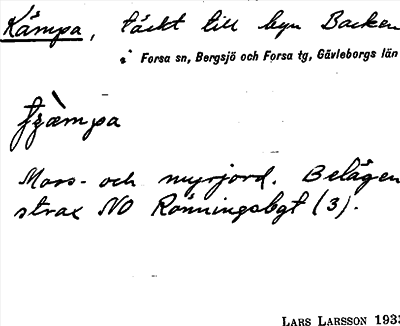 Kämpa, täckt till byn Backen
i Forsa sn, Bergsjö och Forsa tg, Gävleborgs län
Moss- och myrjord. Belägen
strax NO Rönningsbgt (3).
LARS LARSSON 1933